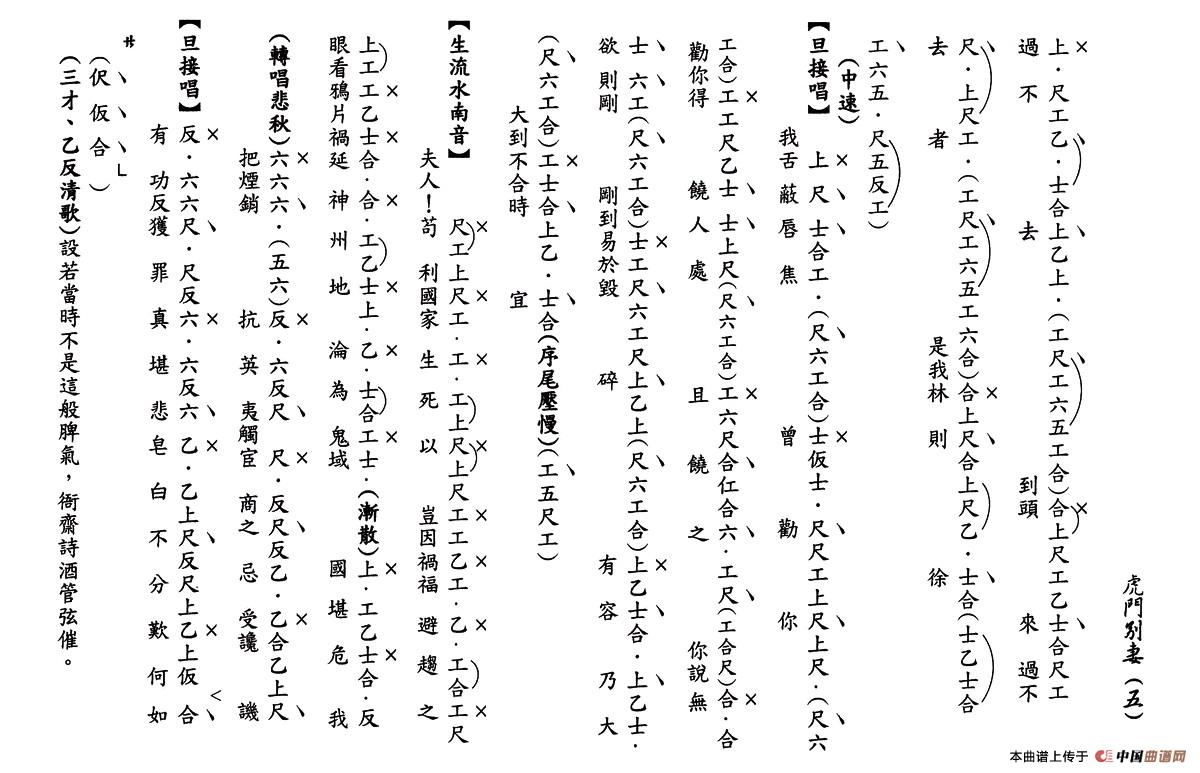 虎門別妻（五）
上．尺工乙．士合上乙上．（工尺工六五工合）合上尺工乙士合尺工
過不去到頭來過不
尺．上尺工．（工尺工六五工六合）合上尺合上尺乙．士合（士乙士合
去者是我林則徐
工六五．尺五反工）
（中速）
【旦接唱】上尺士合工．（尺六工合）士仮士．尺尺工上尺上尺．（尺六
我舌蔽唇焦曾勸你
工合）工工尺乙士士上尺（尺六工合）工六尺合仜合六．工尺（工合尺）合．合
勸你得饒人處且饒之你說無
士六工（尺六工合）士工尺六工尺上乙上（尺六工合）上乙士合．上乙士．
欲則剛剛到易於毀碎有容乃大
（尺六工合）工士合上乙．士合（序尾壓慢）（工五尺工）
大到不合時宜
【生流水南音】
尺工上尺工．工．工上尺上尺工工乙工．乙．工合工尺
夫人！苟利國家生死以豈因禍福避趨之
上工工乙士合．合．工乙士上．乙．士合工士．（漸散）上．工乙士合．反
眼看鴉片禍延神州地淪為鬼域國堪危我
（轉唱悲秋）六六六．（五六）反．六反尺尺．反尺反乙．乙合乙上尺
把煙銷抗英夷觸宦商之忌受讒譏
【旦接唱】反．六六尺．尺反六．六反六乙．乙上尺反尺上乙上仮合
有功反獲罪真堪悲皂白不分歎何如
サ
（伬仮合）
（三才、乙反清歌）設若當時不是這般脾氣，衙齋詩酒管弦催。
本曲谱上传于 中国曲谱网